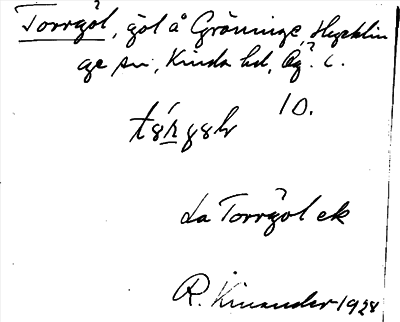 Torrgöl, göl å Gröninge, Hycklin
ge sn, Kinda hd, Ög. l.
10.
La Torrgöl ek
R. Kinander 1928